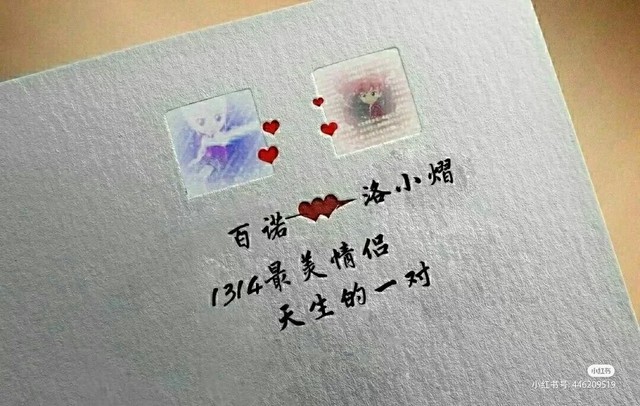 百诺 洛小熠
1314最美情侣
天生的一对
小红书
小红书号:446209519